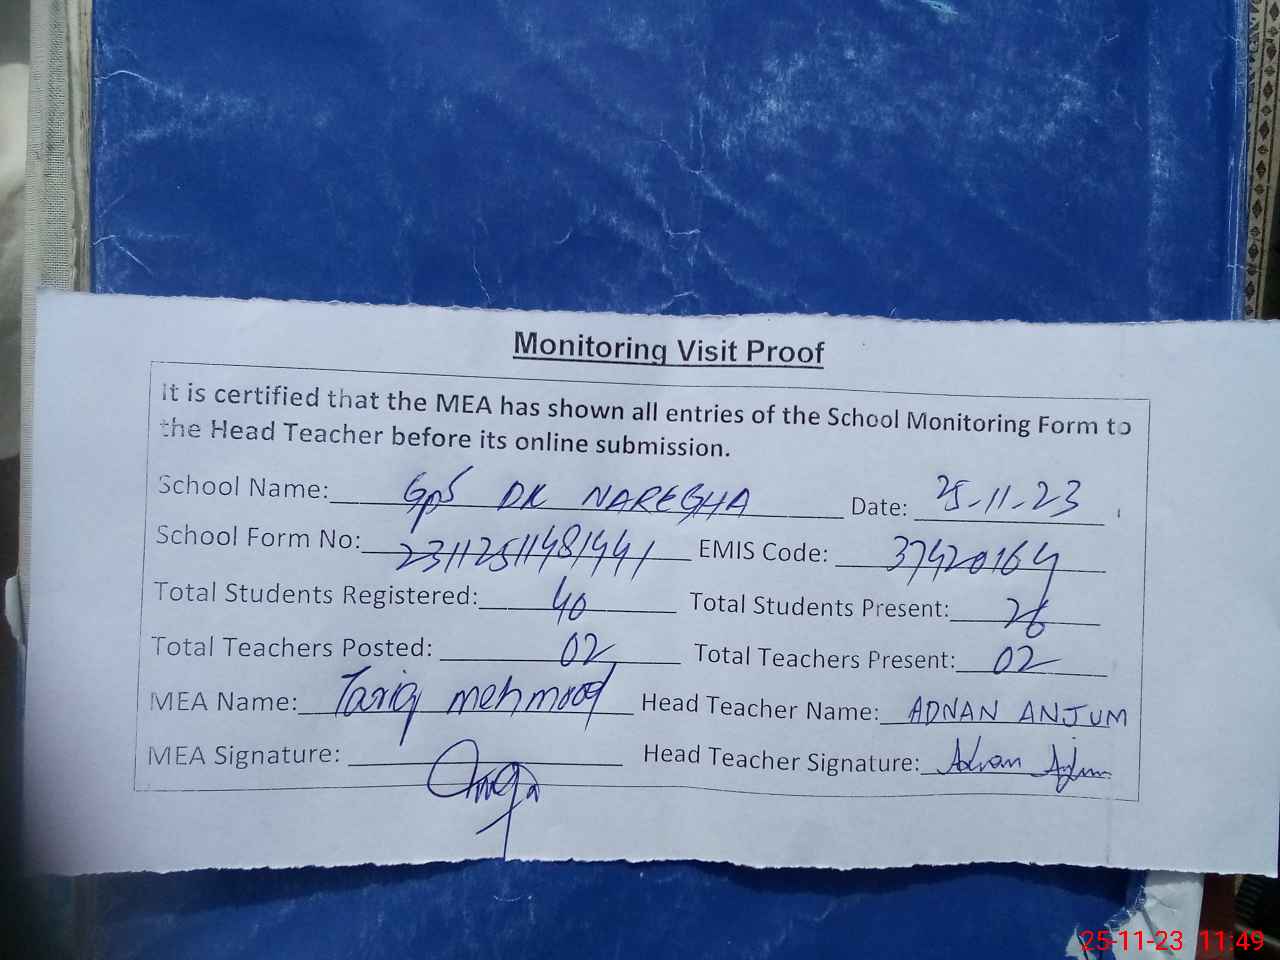 Monitoring Visit Proof
It is certified that the MEA has shown all entries of the School Monitoring Form to
the Head Teacher before its online submission.
School Name: GPS DK NAREGHA Date: 25-11-23
School Form No: 23112511481941 EMIS Code: 37420164
Total Students Registered: 40 Total Students Present: 26
Total Teachers Posted: 02 Total Teachers Present: 02
MEA Name: Tariq mehmood Head Teacher Name: ADNAN ANJUM
MEA Signature: Head Teacher Signature: Adnan Anjum
25-11-23 11:49